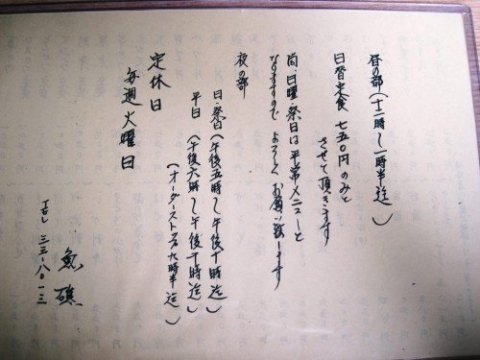 昼の部(十一時〜一時半迄)
日替定食 七五〇円のみと
させて頂きます
尚、日曜・祭日は平常メニューと
なりますので よろしくお願い致します
夜の部
日・祭日(午後五時〜午後十時迄)
平日(午後六時〜午後十時迄)
(オーダーストップ九時半迄)
定休日
毎週火曜日
魚礁
TEL 三三-八〇一三